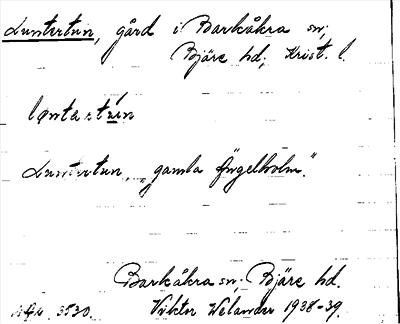 Luntertun, gård i Barkåkra sn;
Bjäre hd; Krist. l.
lǫntərtún
Luntertun, „gamla Ängelholm."
Barkåkra sn. Bjäre hd.
3530. Viktor Welander 1938-39.